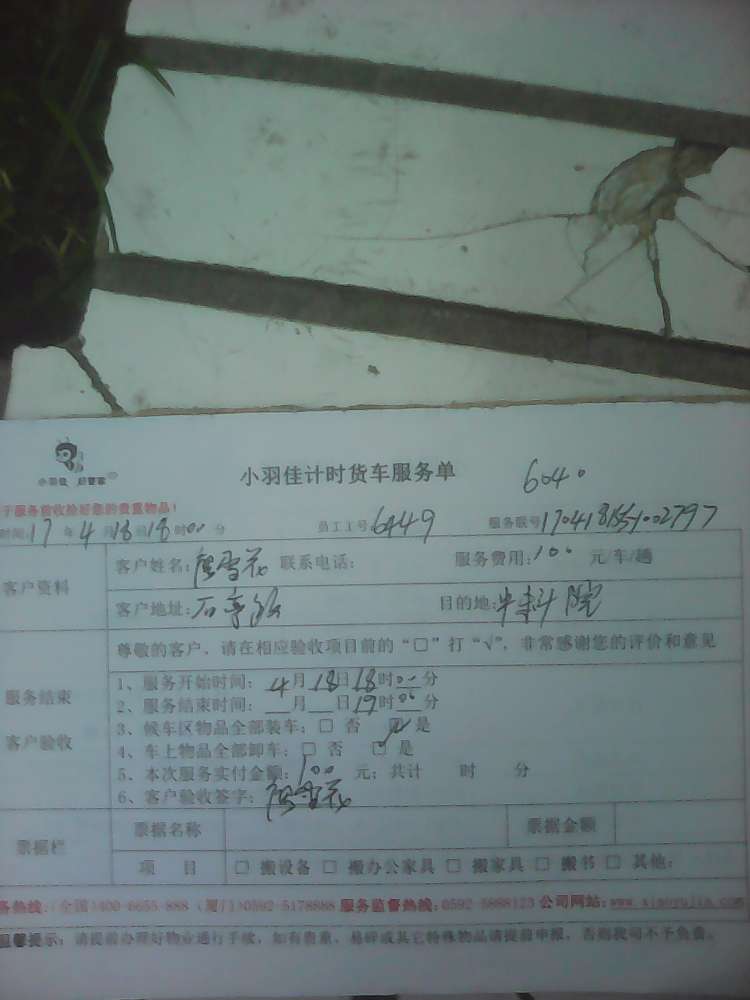 小羽佳 好管家
小羽佳计时货车服务单
6040
于服务前收拾好您的贵重物品!
时间:17 年 4 月 18 日 18 时 00 分 员工工号 6449 服务账号
客户资料
客户姓名: 联系电话: 服务费用:100 元/车/趟
客户地址: 目的地:
尊敬的客户,请在相应验收项目前的“□”打“√”,非常感谢您的评价和意见
服务结束
客户验收
1、服务开始时间: 4 月 18 日 18 时 00 分
2、服务结束时间: __月__日 19 时 00 分
3、候车区物品全部装车:□ 否 □ 是
4、车上物品全部卸车:□ 否 □ 是
5、本次服务实付金额:100 元;共计 时 分
6、客户验收签字:
票据栏
票据名称 票据金额
项 目 □ 搬设备 □ 搬办公家具 □ 搬家具 □ 搬书 □ 其他:
务热线:(全国)400-6655-888 (厦门)0592-5178888 服务监督热线:0592-5888123 公司网站:www.xiaoyujia.com
温馨提示:请提前办理好物业通行手续,如有贵重、易碎或其它特殊物品请提前申报,否则我司不予负责。